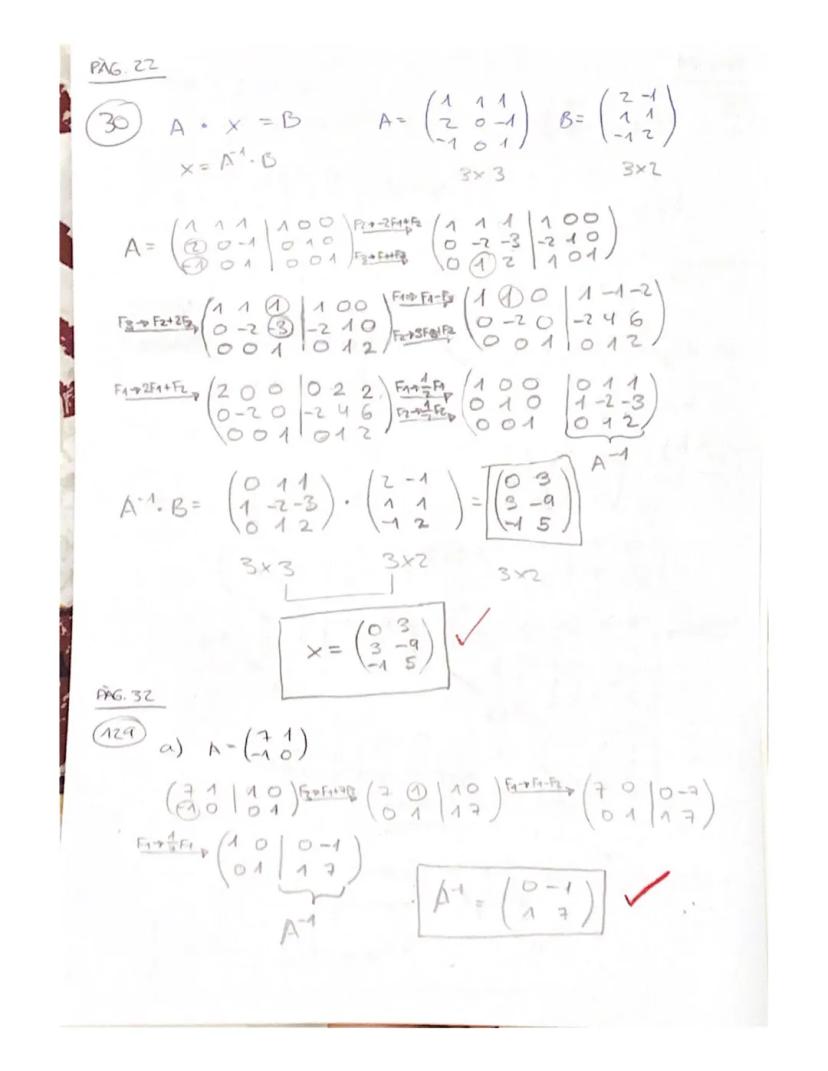 PÀG. 22
30 A · x = B A = (1 1 1 / 2 0 -1 / -1 0 1) B = (2 -1 / 1 1 / -1 2)
x = A⁻¹ · B 3x3 3x2
A = (1 1 1 | 1 0 0 / 2 0 -1 | 0 1 0 / -1 0 1 | 0 0 1) F2→-2F1+F2 F3→F1+F3 (1 1 1 | 1 0 0 / 0 -2 -3 | -2 1 0 / 0 1 2 | 1 0 1)
F3→F2+2F3 (1 1 1 | 1 0 0 / 0 -2 -3 | -2 1 0 / 0 0 1 | 0 1 2) F1→F1-F3 F2→3F3+F2 (1 1 0 | 1 -1 -2 / 0 -2 0 | -2 4 6 / 0 0 1 | 0 1 2)
F1→2F1+F2 (2 0 0 | 0 2 2 / 0 -2 0 | -2 4 6 / 0 0 1 | 0 1 2) F1→½F1 F2→-½F2 (1 0 0 | 0 1 1 / 0 1 0 | 1 -2 -3 / 0 0 1 | 0 1 2)
A⁻¹
A⁻¹ · B = (0 1 1 / 1 -2 -3 / 0 1 2) · (2 -1 / 1 1 / -1 2) = (0 3 / 3 -9 / -1 5)
3x3 3x2 3x2
x = (0 3 / 3 -9 / -1 5) ✓
PÀG. 32
129 a) A = (7 1 / -1 0)
(7 1 | 1 0 / -1 0 | 0 1) F2→F1+7F2 (7 1 | 1 0 / 0 1 | 1 7) F1→F1-F2 (7 0 | 0 -7 / 0 1 | 1 7)
F1→1/7F1 (1 0 | 0 -1 / 0 1 | 1 7)
A⁻¹
A⁻¹ = (0 -1 / 1 7) ✓